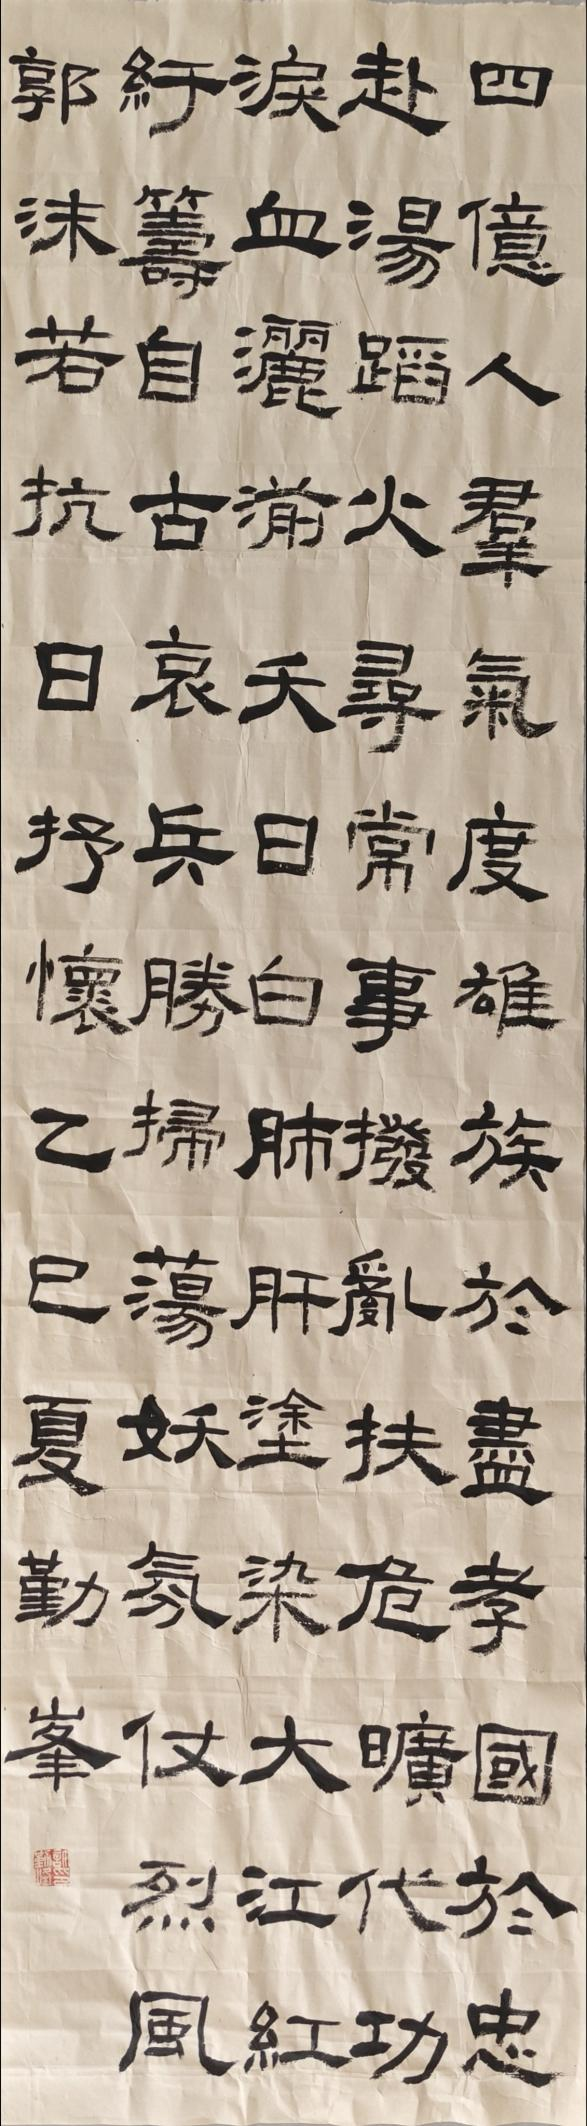 四億人羣氣度雄族於盡孝國於忠
赴湯蹈火尋常事撥亂扶危曠代功
淚血灑滿天日白肺肝塗染大江紅
紆籌自古哀兵勝掃蕩妖氛仗烈風
郭沫若抗日抒懷乙巳夏勤峯